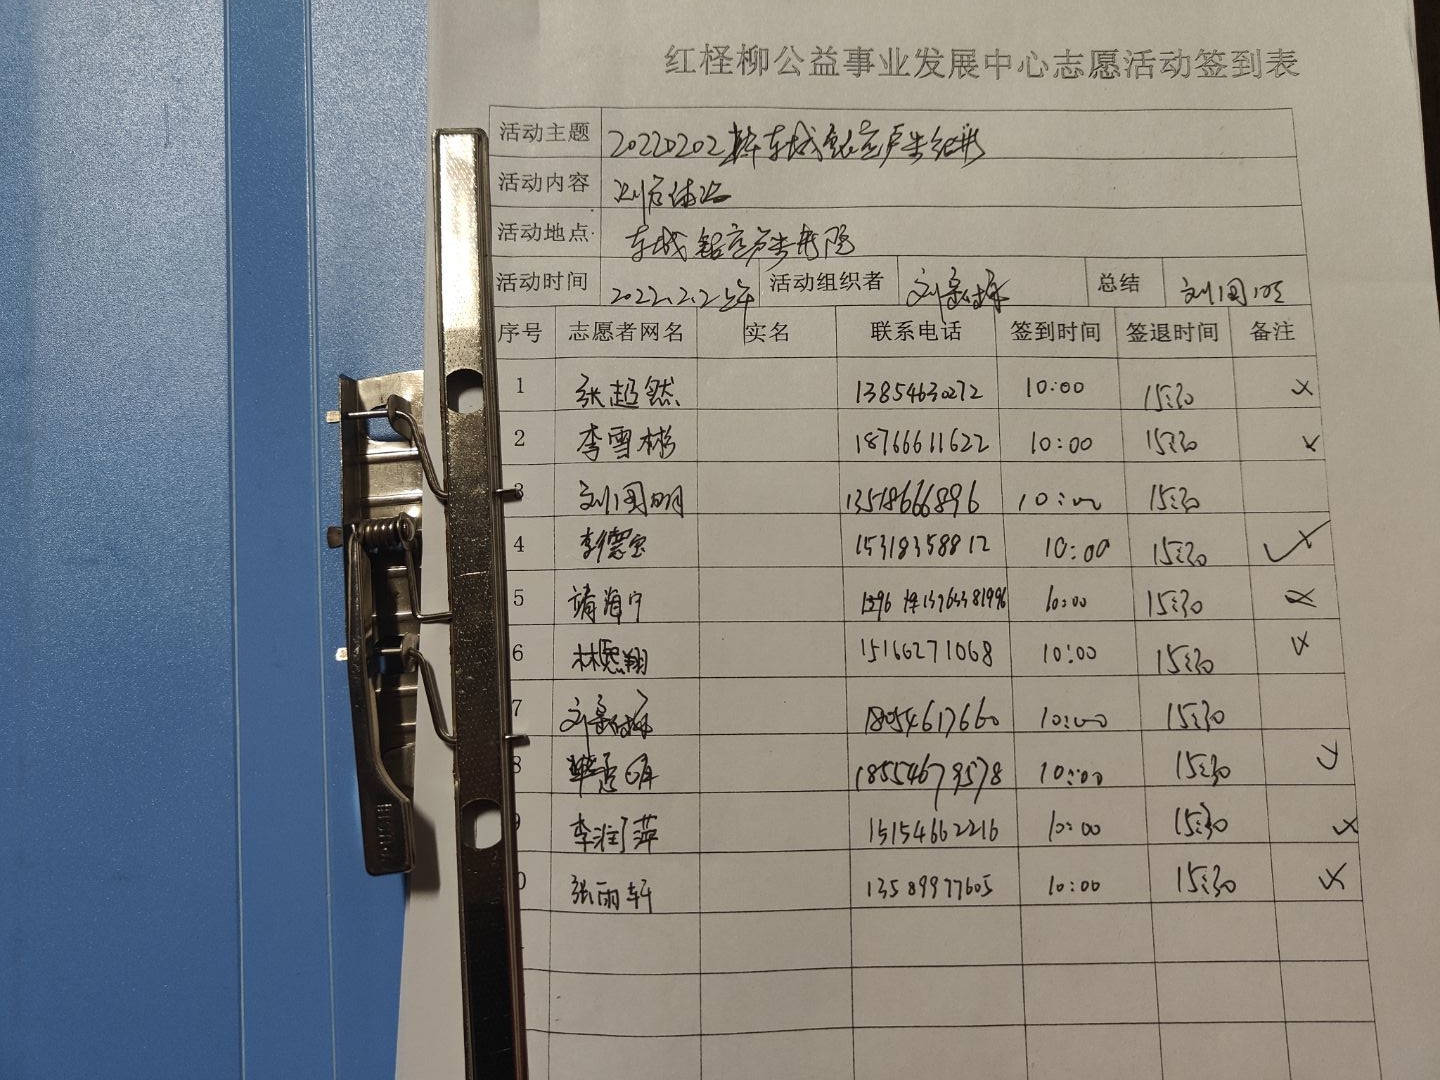 红柽柳公益事业发展中心志愿活动签到表
活动主题 20220202
活动内容
活动地点 东城
活动时间 2022.2.2 活动组织者 总结 刘国明
序号 志愿者网名 实名 联系电话 签到时间 签退时间 备注
1 张超然 13854630272 10:00 15:30
2 李雪彬 18766611622 10:00 15:30
3 刘国明 13518666896 10:00 15:30
4 李德宝 15318358812 10:00 15:30
5 靖海宁 10:00 15:30
6 林熙翔 15166271068 10:00 15:30
7 18054617660 10:00 15:30
8 18554679578 10:00 15:30
9 李润萍 15154662216 10:00 15:30
0 张雨轩 13589977605 10:00 15:30